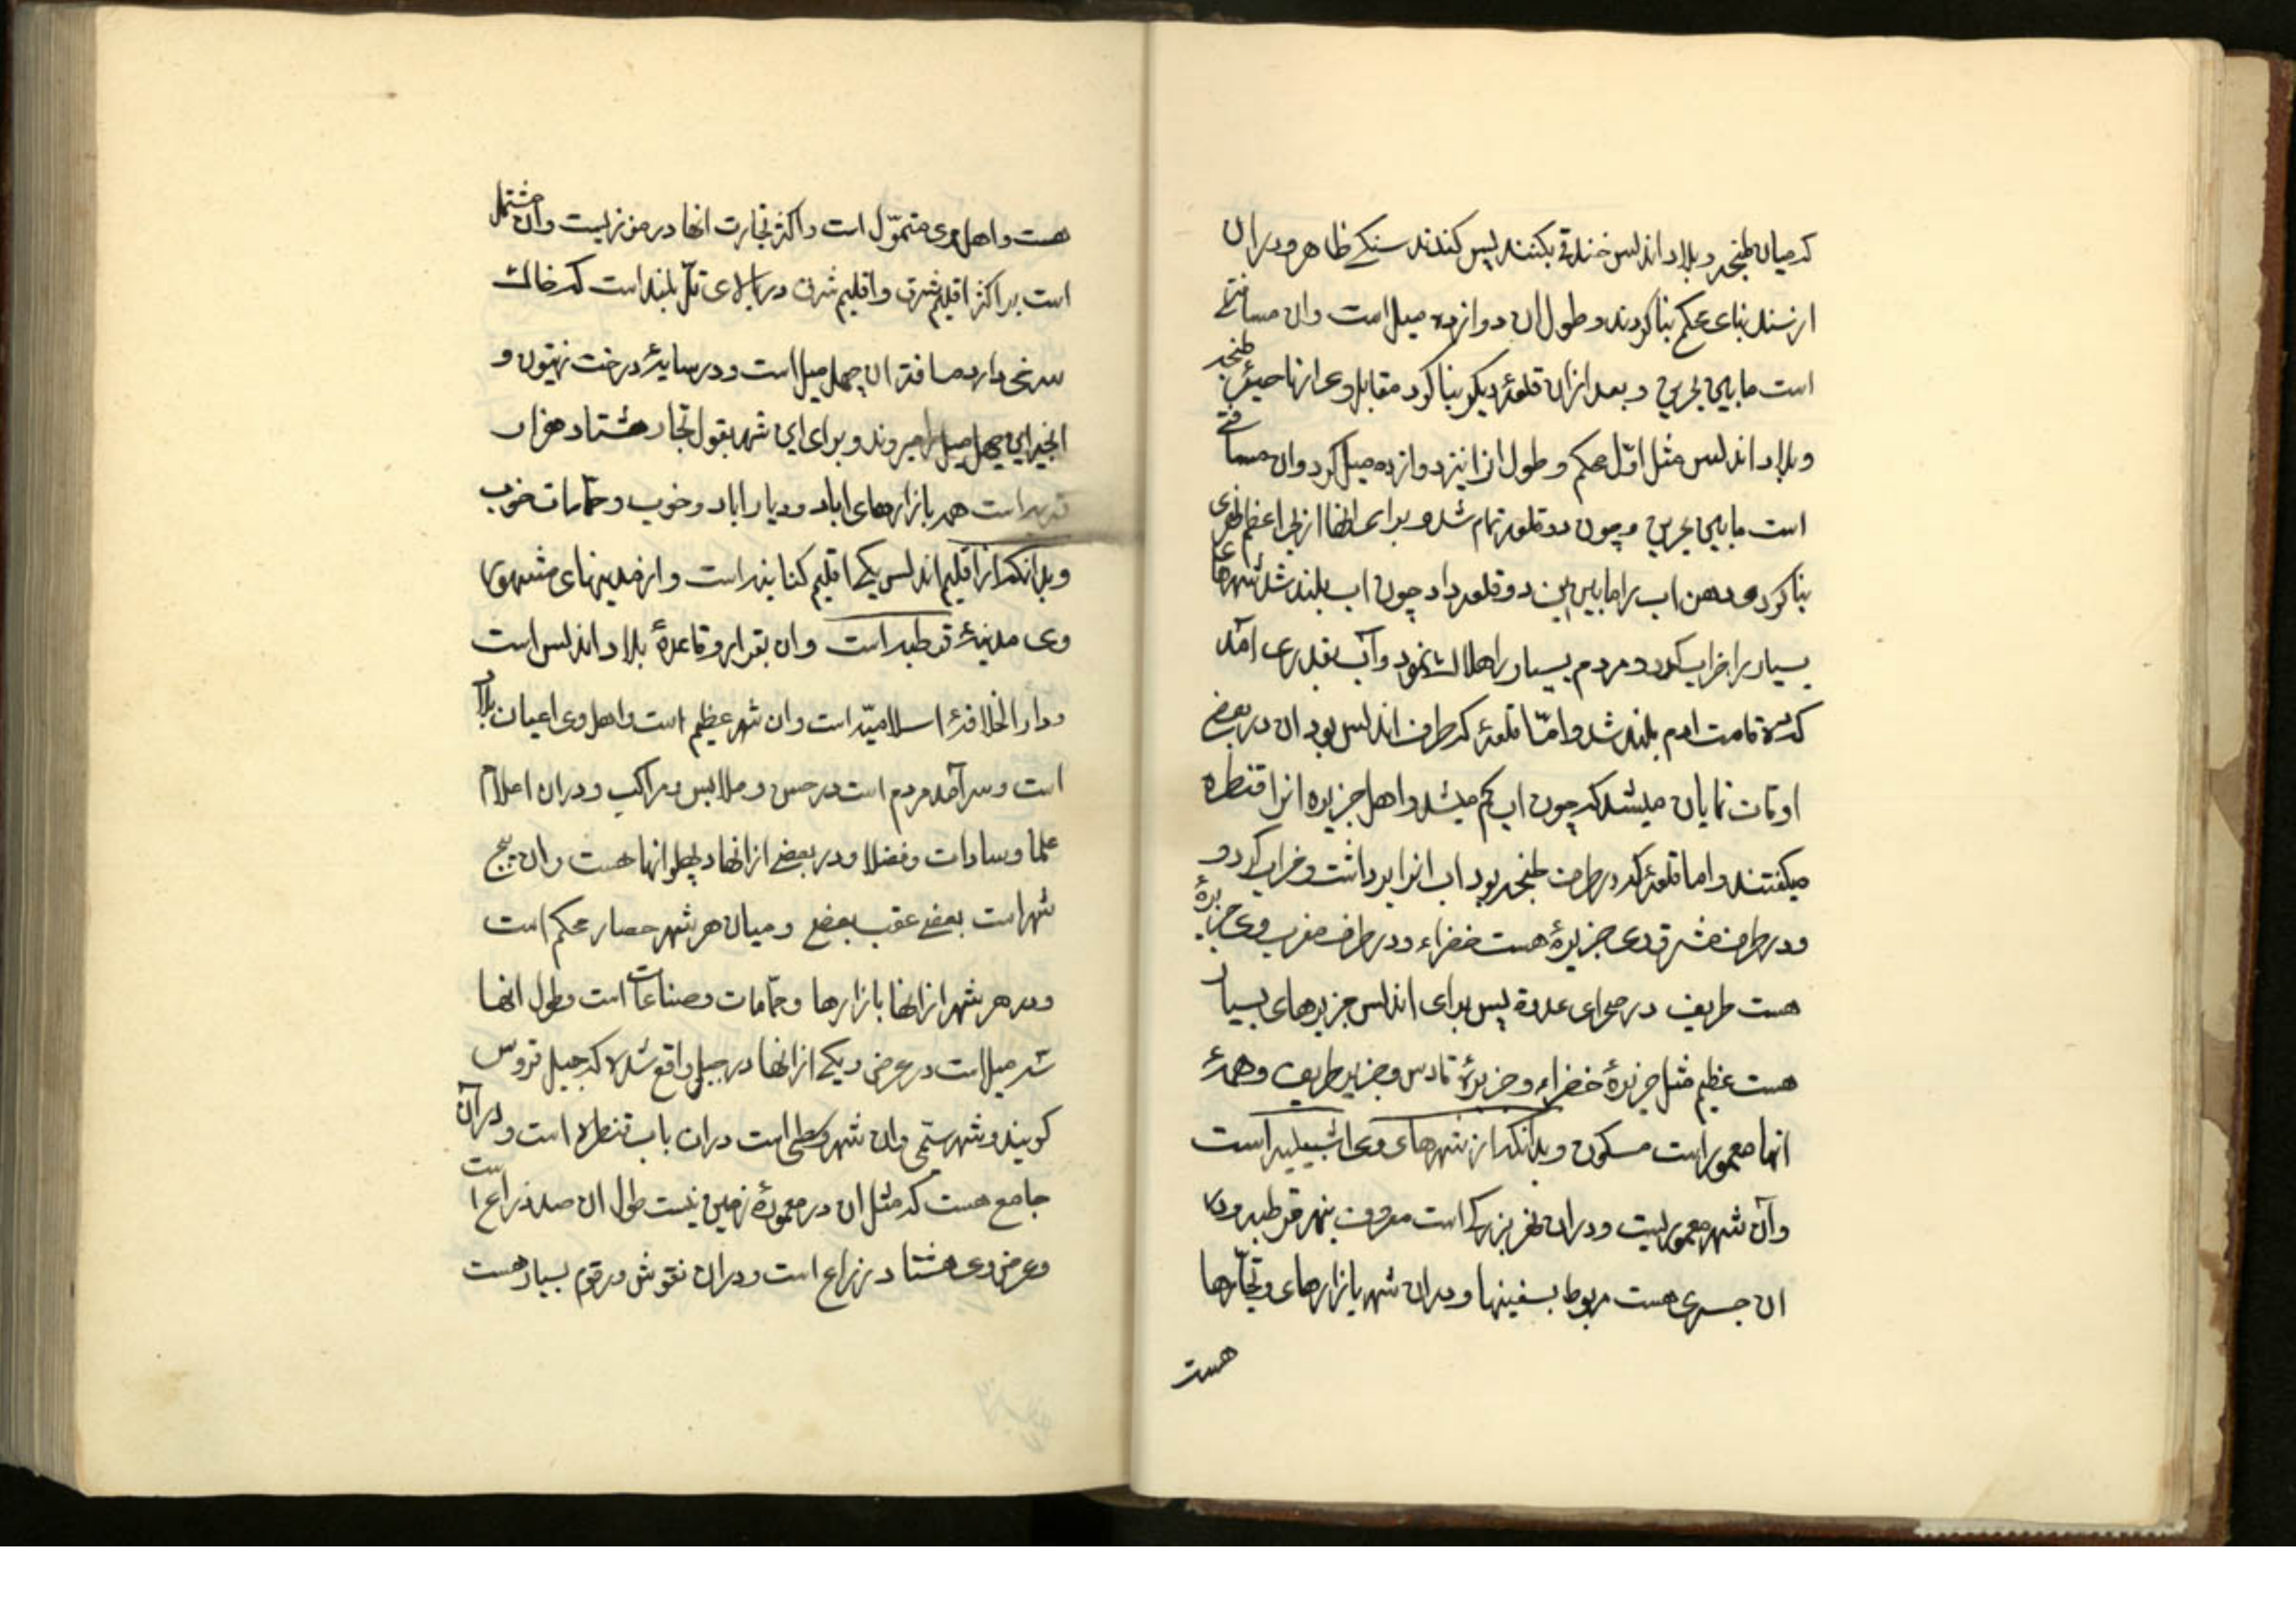 که میان طنجه و بلاد اندلس خندقی بکنند پس کندند سنکی ظاهر و دران
از سنک بنای محکم بنا کردند و طول ان دوازده میل است وان مسافتی
است مابین بحرین و بعد ازان قلعهٔ دیکر بنا کرد مقابل وی از ناحیهٔ طنجه
و بلاد اندلس مثل اوّل محکم و طول انرا نیز دوازده میل کرد وان مسافتی
است مابین بحرین و چون دو قلعه تمام شد و برای انها از بحر اعظم نهری
بنا کرد و دهن اب را مابین این دو قلعه داد چون اب بلند شد شهرهای
بسیار را خراب کرد و مردم بسیار را هلاک نمود و آب بقدری آمد
که قامت ادم بلند شد و امّا قلعهٔ که طرف اندلس بود ان در بعض
اوقات نمایان میشد که چون اب کم میشد و اهل جزیره انرا قنطره
میکفتند و اما قلعهٔ که در طرف طنجه بود اب انرا برداشت و خراب کرد و
و در طرف مشرق وی جزیرهٔ هست خضراء و در طرف مغرب وی جزیرهٔ
هست طریف در صحرای عدوة پس برای اندلس جزیرهای بسیار
هست عظیم مثل جزیرهٔ خضراء و جزیرهٔ قادس و جزیره طریف و همهٔ
انها معمور است مسکون و بدانکه از شهرهای وی اشبیلیه است
وآن شهر معموریست و دران نهر بزرکی است معروف بنهر قرطبه و در
ان جسری هست مربوط بسفینها و دران شهر بازارهای و تجّارها
هست
هست و اهل وی متموّل است و اکثر تجارت انها در من زیست وان مشتمل
است بر اکثر اقلیم شرق و اقلیم شرق در بالای تلّ بلند است که خاک
سرخی دارد مسافت ان چهل میل است و در سایهٔ درخت زیتون و
انجیر این چهل میل را میروند و برای این شهر بقول تجار هشتاد هزار
قریه است همه بازارهای اباد و دیار اباد و خوب و حمّامات خوب
و بدانکه از اقلیم اندلس یکی اقلیم کنابنه است و از مدینهای مشهور
وی مدینهٔ قرطبه است وان بقرار و قاعدهٔ بلاد اندلس است
و دار الخلافهٔ اسلامیّه است وان شهر عظیم است و اهل وی اعیان بلاد
است و سرآمد مردم است در حسن و ملابس و مراکب و دران اعلام
علما و سادات و فضلا و در بعضی از انها پهلوانها هست وان پنج
شهر است بعضی عقب بعضی و میان هر شهر حصار محکم است
و در هر شهر از انها بازارها و حمّامات و صناعات است و طول انها
سه میل است در عرض و یکی از انها در جبل واقع شده که جبل قروس
کویند و شهر ستمی وان شهر وسطی است دران باب قنطره است و در آن
جامع هست که مثل ان در معمورهٔ زمین نیست طول ان صد ذراع است
و عرض وی هشتاد ذراع است و دران نقوش و رقوم بسیار هست